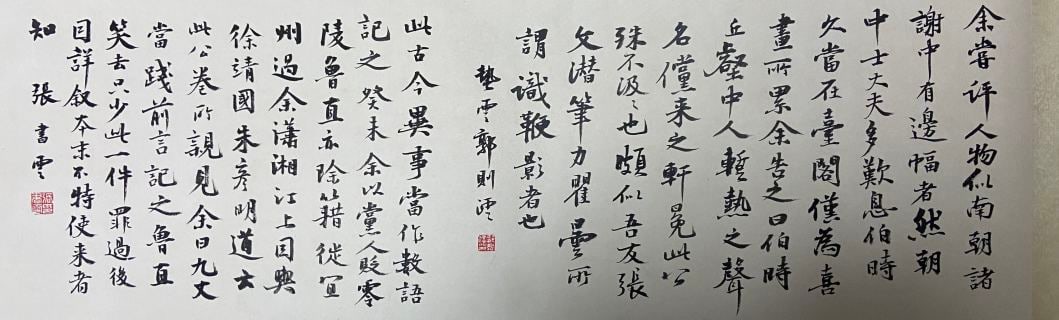 余嘗評人物似南朝諸
謝中有邊幅者然朝
中士大夫多歎息伯時
久當在臺閣僅為喜
畫所累余告之曰伯時
丘壑中人暫熱之聲
名儻來之軒冕此公
殊不汲々也頗似吾友張
文潛筆力瞿曇所
謂識鞭影者也
藝雲郭則澐
此古今異事當作數語
記之癸未余以黨人貶零
陵魯直亦除籍徙宜
州過余瀟湘江上因與
徐靖國朱彥明道云
此公卷所親見余曰九丈
當踐前言記之魯直
笑去只少此一件罪過後
因詳叙本末不特使來者
知 張書雲